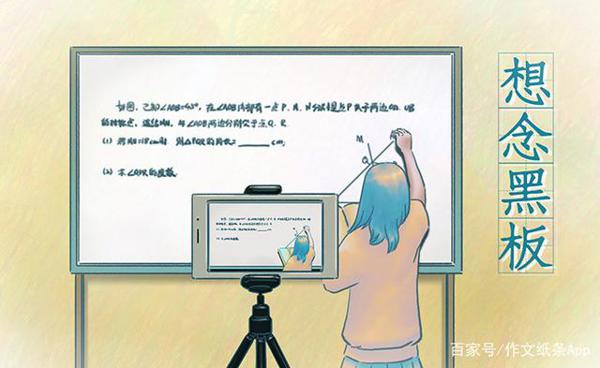 如图，已知∠AOB=45°，在∠AOB内部有一点P，M、N分别是点P关于两边OA、OB
的对称点，连结MN，与∠AOB两边分别交于点Q、R.
(1) 若MN=18cm时，则△PQR的周长=______cm;
(2) 求∠QPR的度数.
M
Q
想念黑板
百家号/作文纸条App